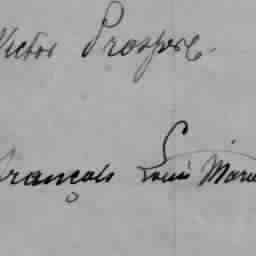 Victor Prosper
François Louis Marie